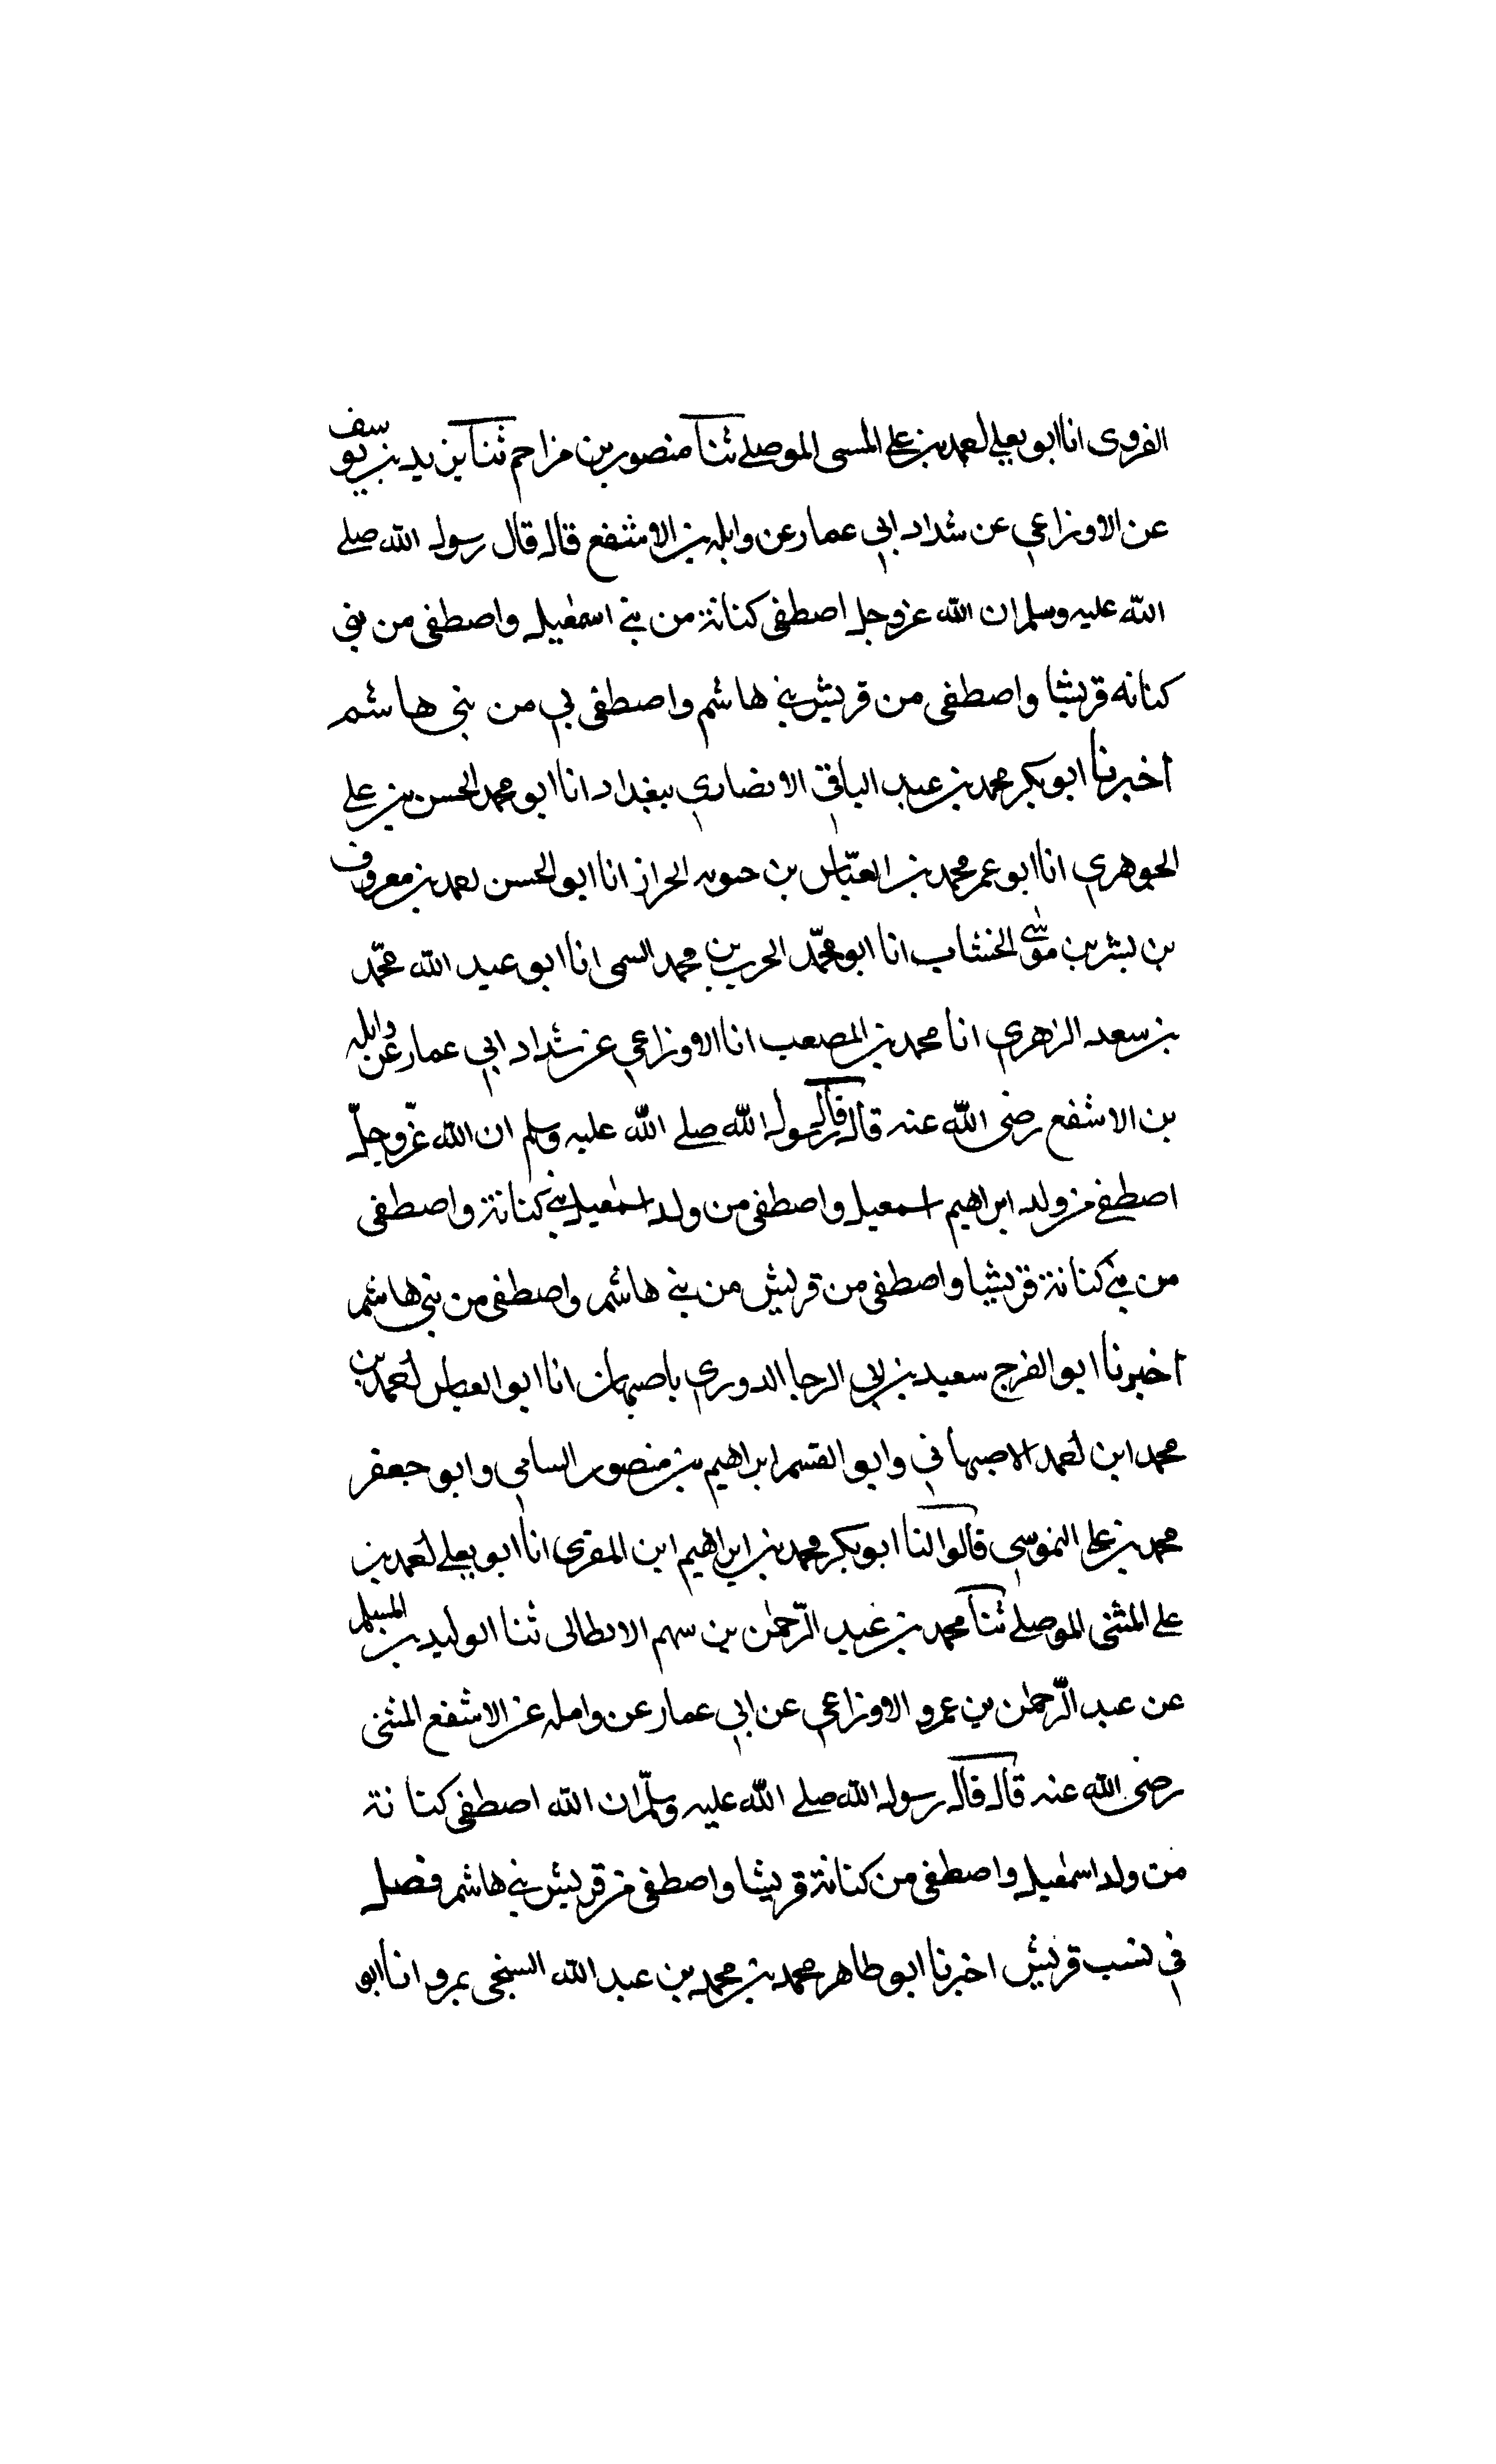 الفروى انا ابو يعلى احمد بن على المسى الموصلے ثنا منصور بن مزاحم ثنا يزيد بن يوسف
عن الاوزاعي عن شداد ابي عمار عن وابله بن الاشفع قال قال رسول الله صلے
الله عليه وسلم ان الله عز وجل اصطفى كنانة من بنے اسمعيل واصطفى من بنى
كنانه قريشا واصطفى من قريش بنے هاشم واصطفى بي من بنى هاشم
اخبرنا ابو بكر محمد بن عبد الباقي الانصاري ببغداد انا ابو محمد الحسن بن علے
الجوهري انا ابو عمر محمد بن العبّاس بن حىويه الحراز انا ابو الحسن احمد بن معروف
بن بشر بن موسٰى الخشاب انا ابو محمّد الحرب بن محمد السمى انا ابو عبد الله محمّد
بن سعد الزهري انا محمد بن المصعب انا الاوزاعي عن شداد ابي عمار عن وابله
بن الاشفع رضى الله عنه قال قال رسول الله صلے الله عليه وسلم ان الله عزّ وجلّ
اصطفے من ولد ابراهيم اسمعيل واصطفى من ولد اسمٰعيل بنے كنانة واصطفى
من بنے كنانة قريشا واصطفى من قريش من بنے هاشم واصطفى من بنى هاشم
اخبرنا ابو الفرج سعيد بن ابي الرجا الدوري باصبهان انا ابو العباس احمد بن
محمد ابن احمد الاصبهاني وابو القسم ابراهيم بن منصور السامي وابو جعفر
محمد بن على النموسي قالوا لنا ابو بكر محمد بن ابراهيم ابن المقري انا ابو يعلے احمد بن
علے المثنى الموصلے ثنا محمد بن عبد الرّحمٰن بن سهم الانطالى ثنا الوليد بن المسلم
عن عبد الرّحمٰن بن عمرو الاوزاعي عن ابي عمار عن وامله عن الاشفع المثنى
رضى الله عنه قال قال رسول الله صلے الله عليه وسلّم ان الله اصطفى كنانة
من ولد اسمٰعيل واصطفى من كنانة قريشا واصطفى من قريش بنے هاشم فصل
في نسب قريش اخبرنا ابو طاهر محمد بن محمد بن عبد الله السنجى بمرو انا ابو